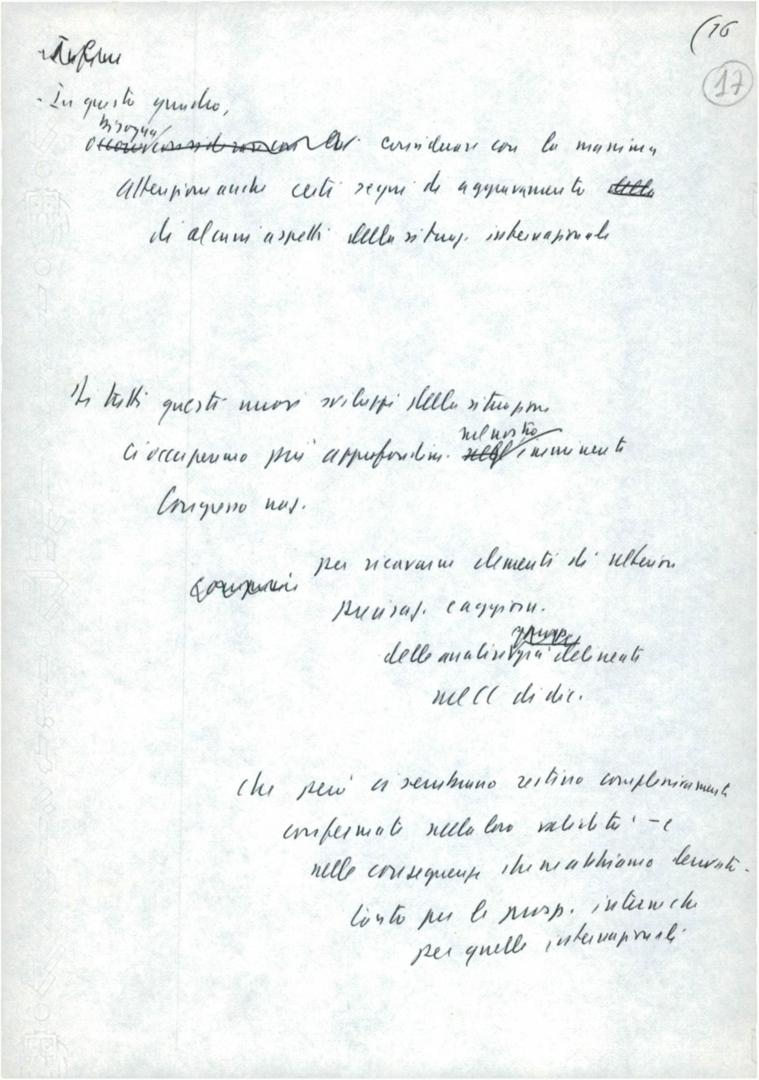 (16
17
- Infine
- In questo quadro,
bisogna
considerare con la massima
attenzione anche certi segni di aggravamento della
di alcuni aspetti della situaz. internazionale
Di tutti questi nuovi sviluppi della situazione
nel nostro
ci occuperemo più approfondim. imminente
Congresso naz.
per ricavarne elementi di ulteriore
precisaz. e aggiorn.
delle analisi già delineate
nel CC di dic.
che però ci sembrano restino complessivamente
confermate nella loro validità - e
nelle conseguenze che ne abbiamo derivate -
tanto per le prosp. interne che
per quelle internazionali